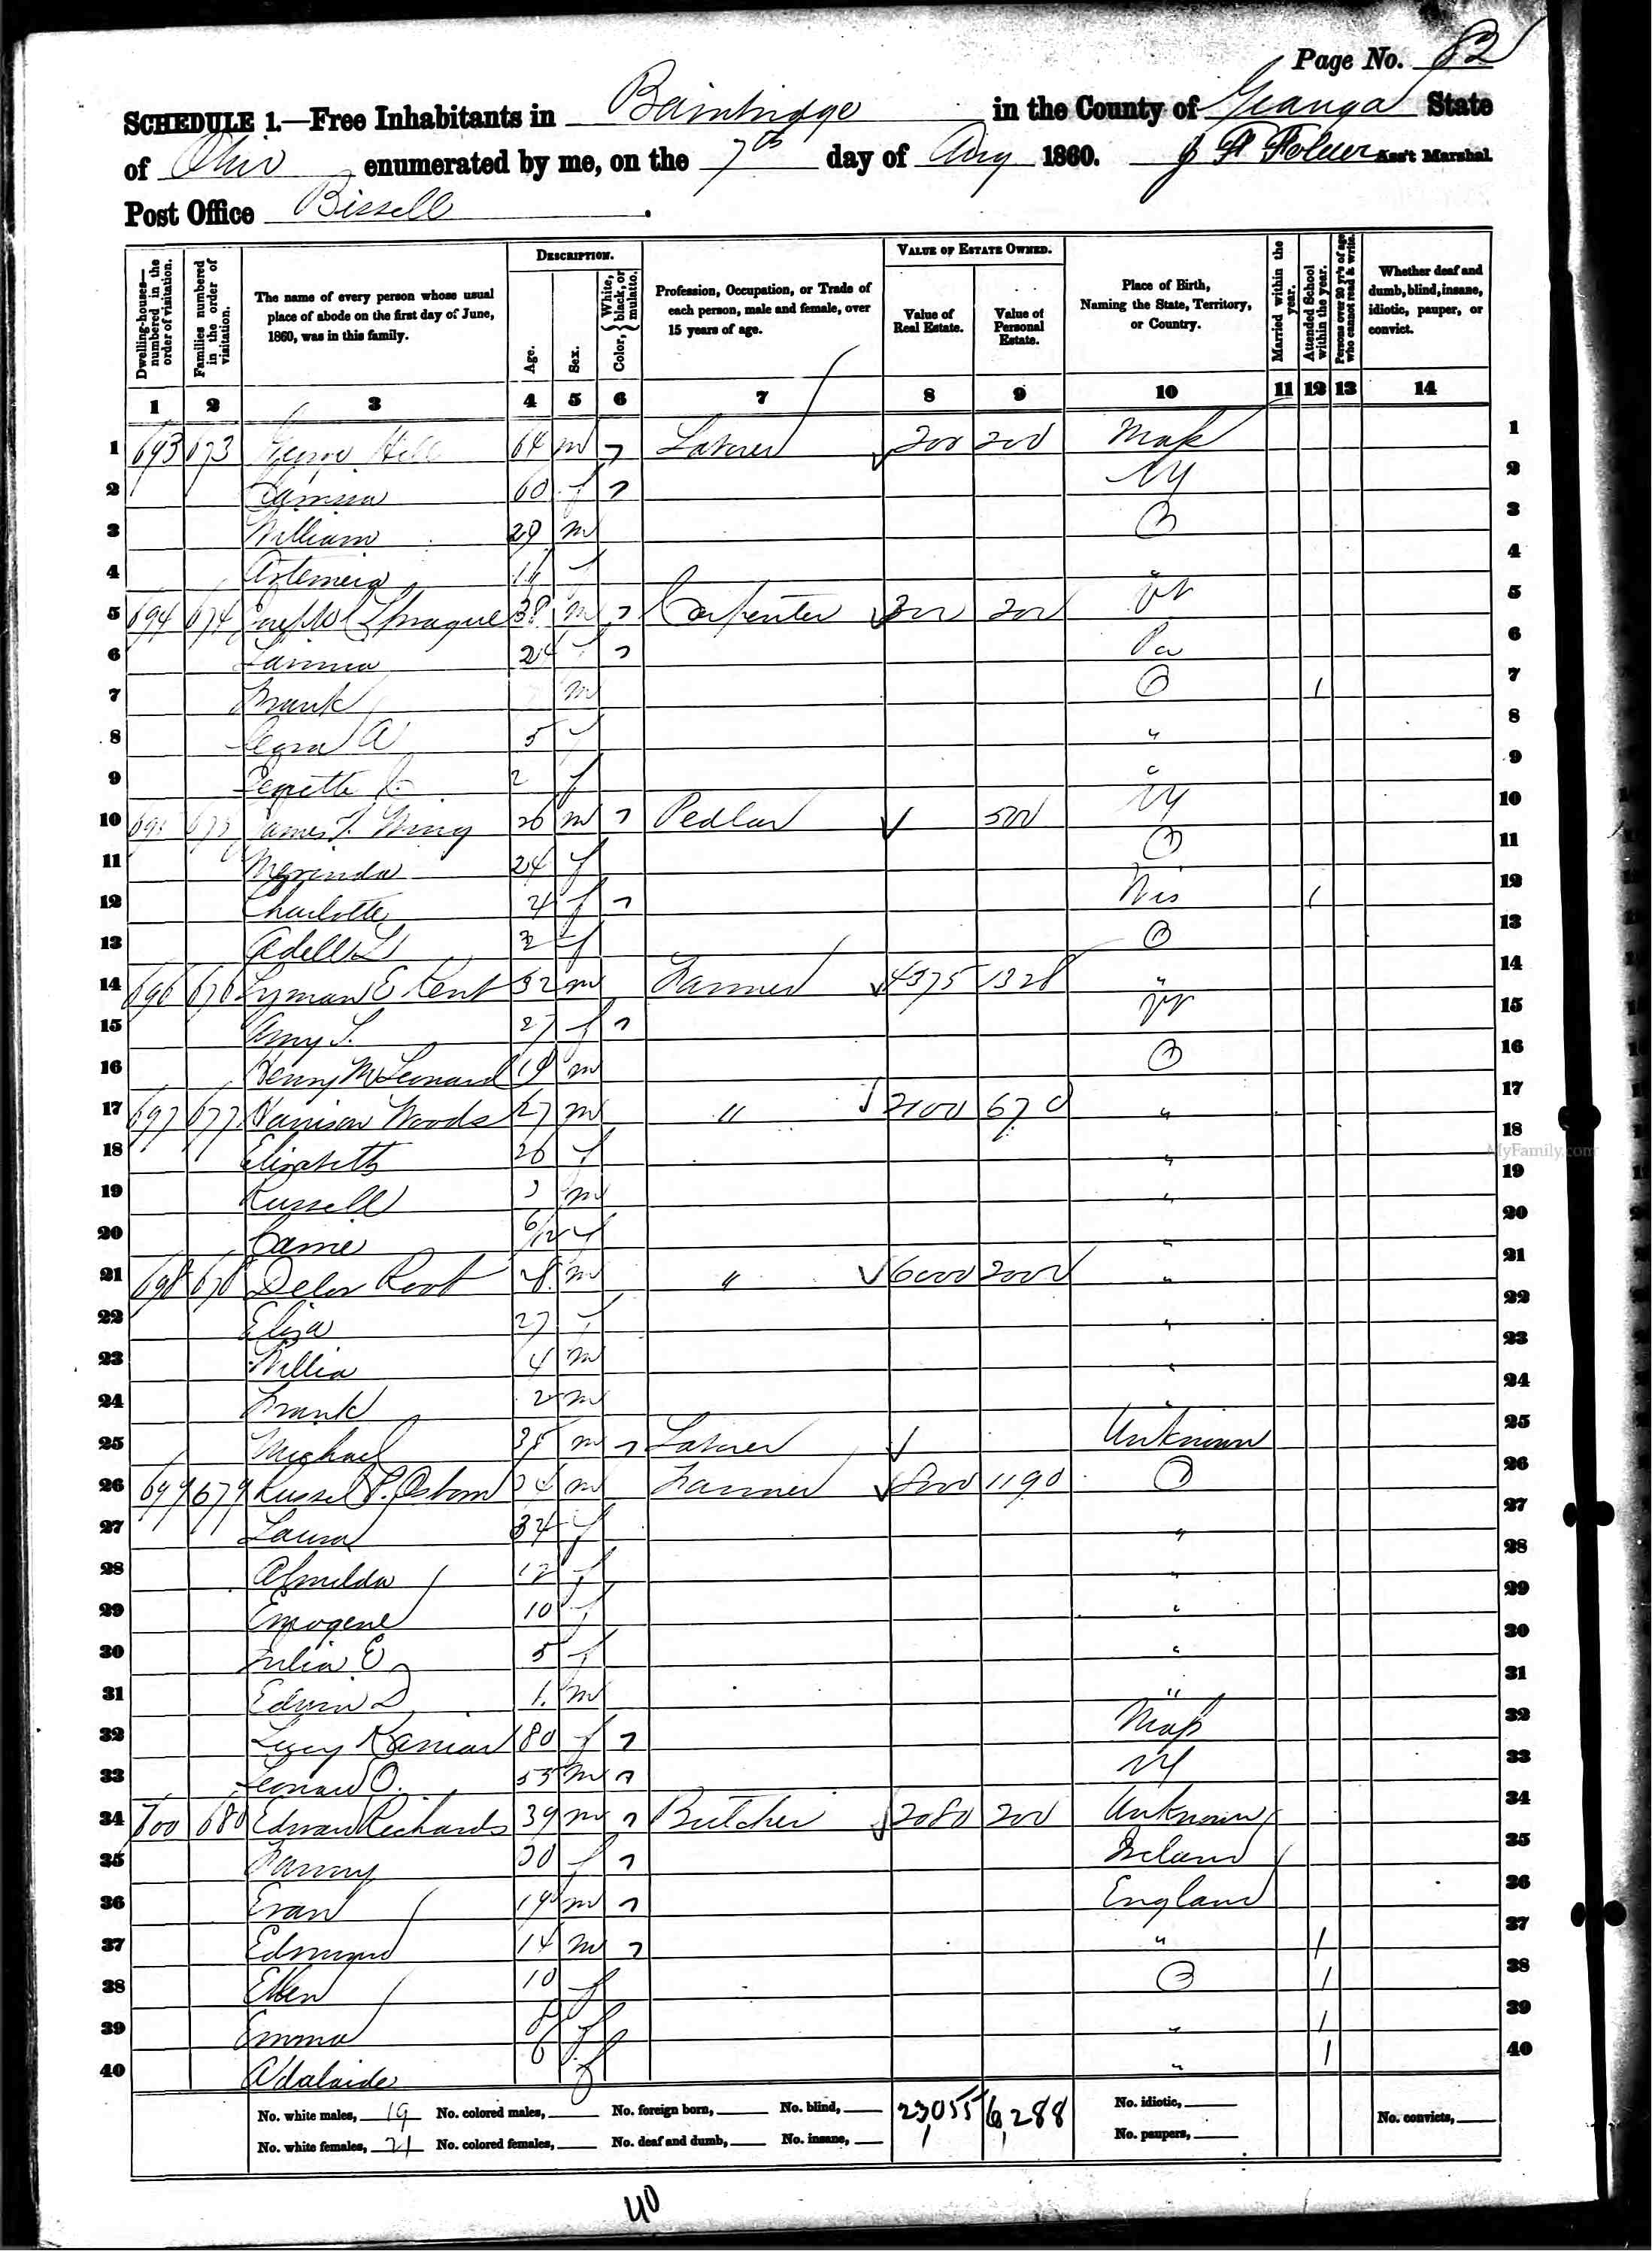 Page No. 82
SCHEDULE 1.—Free Inhabitants in Bainbridge in the County of Geauga State
of Ohio enumerated by me, on the 7th day of Aug 1860. Ass't Marshal
Post Office Bissell .
DESCRIPTION. VALUE OF ESTATE OWNED.
Dwelling-houses—numbered in the order of visitation. Families numbered in the order of visitation. The name of every person whose usual place of abode on the first day of June, 1860, was in this family. Age. Sex. Color, { White, black, or mulatto. Profession, Occupation, or Trade of each person, male and female, over 15 years of age. Value of Real Estate. Value of Personal Estate. Place of Birth, Naming the State, Territory, or Country. Married within the year. Attended School within the year. Persons over 20 y'rs of age who cannot read & write. Whether deaf and dumb, blind, insane, idiotic, pauper, or convict.
1 2 3 4 5 6 7 8 9 10 11 12 13 14
1 693 673 George Hill 64 m 7 Laborer 200 200 Mass 1
2 60 f 7 NY 2
3 William 29 m O 3
4 f " 4
5 694 674 Sprague 38 m 7 Carpenter 300 200 Vt 5
6 24 f 7 Pa 6
7 Frank m O 1 7
8 A 5 f " 8
9 2 f " 9
10 695 675 James Wing 26 m 7 Pedlar 500 NY 10
11 24 f O 11
12 Charlotte 4 f 7 Wis 1 12
13 Adell L 2 f O 13
14 696 676 Lyman E Kent 32 m Farmer 4375 1328 " 14
15 Amy S. 27 f 7 Vt 15
16 Henry M Leonard 19 m O 16
17 697 677 Harrison Woods 27 m " 2100 670 " 17
18 Elizabeth 26 f " 18
19 Russell 3 m " 19
20 Carrie 6/12 f " 20
21 698 678 Delos Root 28 m " 6000 2000 " 21
22 Eliza 27 f " 22
23 Willie 4 m " 23
24 Frank 2 m " 24
25 Michael 35 m 7 Laborer Unknown 25
26 699 679 Russel P. Osborn 34 m Farmer 8000 1190 O 26
27 Laura 34 f " 27
28 Almilda 12 f " 28
29 Emogene 10 f " 29
30 Julia E 5 f " 30
31 Edwin D 1 m " 31
32 Lucy 80 f 7 Mass 32
33 Leonard O. 53 m 7 NY 33
34 700 680 Edward Richards 39 m 7 Butcher 2080 200 Unknown 34
35 Fanny 30 f 7 Ireland 35
36 Evan 19 m 7 England 36
37 Edmund 14 m 7 " 1 37
38 Ellen 10 f O 1 38
39 Emma 8 f " 1 39
40 Adalaide 6 f " 1 40
No. white males, 19 No. colored males, No. foreign born, No. blind, 23,055 6,288 No. idiotic, No. convicts,
No. white females, 21 No. colored females, No. deaf and dumb, No. insane, No. paupers,
40
MyFamily.com